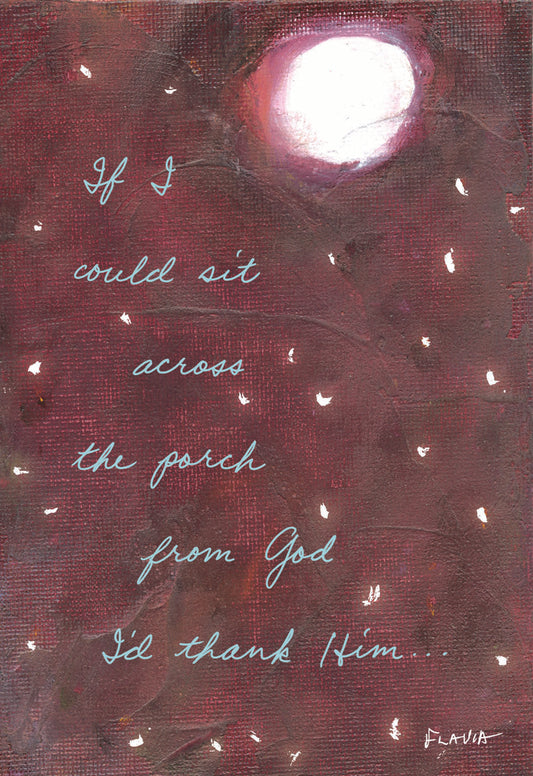 If I
could sit
across
the porch
from God
I'd thank Him...
FLAVIA